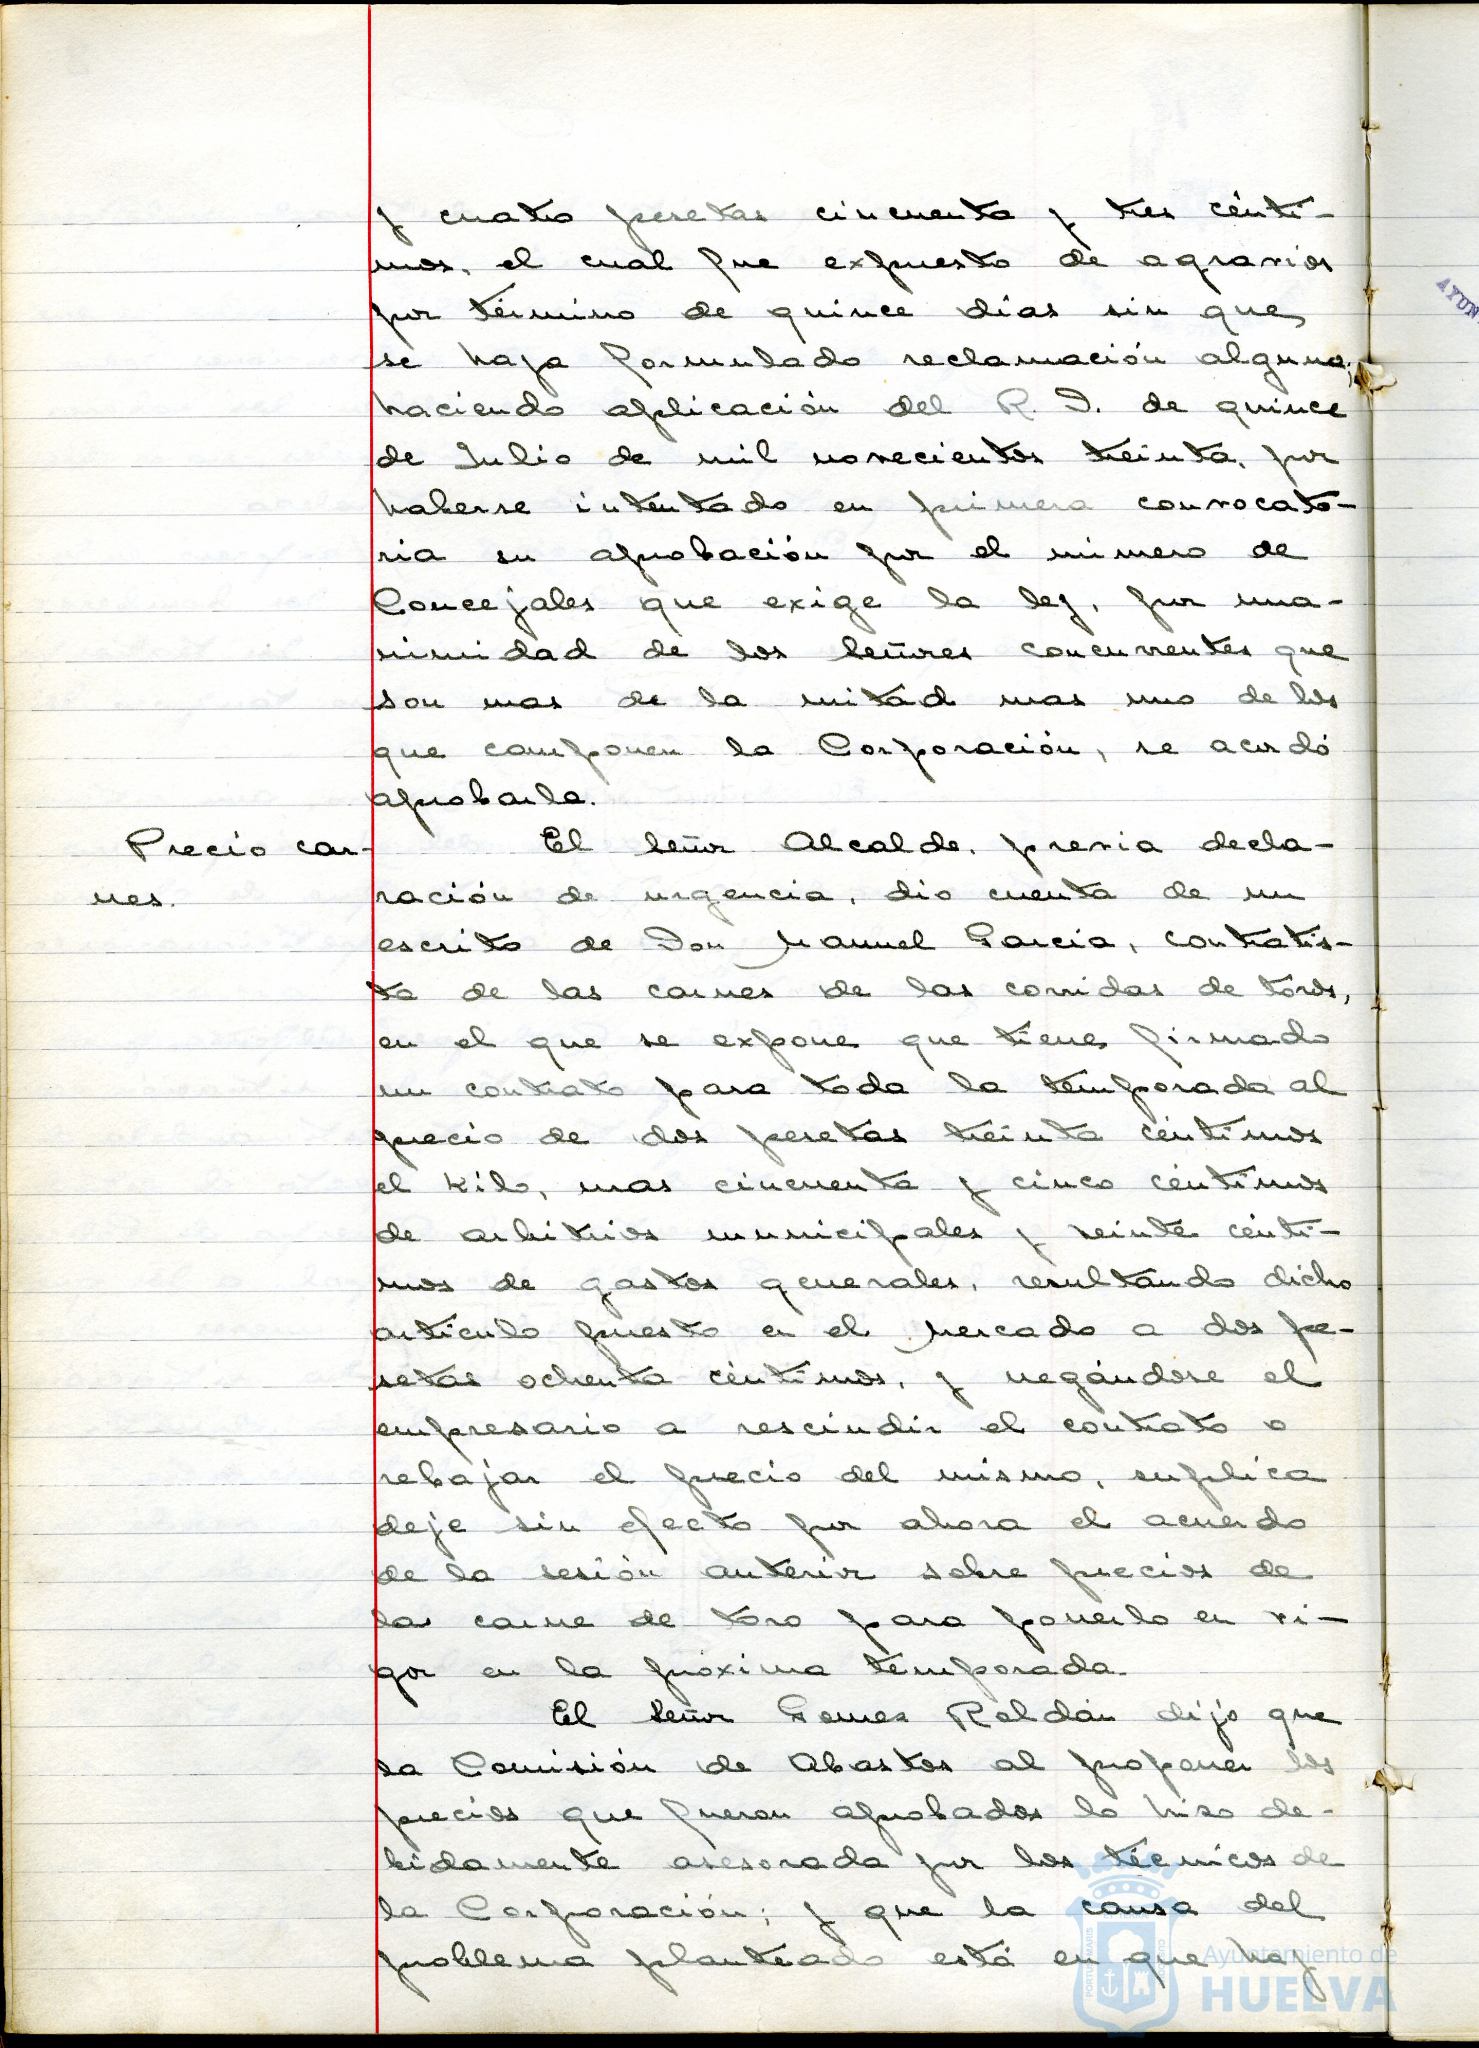 y cuatro pesetas cincuenta y tres cénti-
mos, el cual fue expuesto de agravios
por término de quince días sin que
se haya formulado reclamación alguna;
haciendo aplicación del R. D. de quince
de Julio de mil novecientos treinta, por
haberse intentado en primera convocato-
ria su aprobación por el número de
Concejales que exige la ley, por una-
nimidad de los Señores concurrentes que
son mas de la mitad mas uno de los
que componen la Corporación, se acordó
aprobarla.
Precio car-
nes.
El Señor Alcalde, previa decla-
ración de urgencia, dio cuenta de un
escrito de Don Manuel García, contratis-
ta de las carnes de las corridas de toros,
en el que se expone que tiene firmado
un contrato para toda la temporada al
precio de dos pesetas treinta céntimos
el kilo, mas cincuenta y cinco céntimos
de arbitrios municipales y veinte cénti-
mos de gastos generales, resultando dicho
artículo puesto en el Mercado a dos pe-
setas ochenta céntimos, y negándose el
empresario a rescindir el contrato o
rebajar el precio del mismo, suplica
deje sin efecto por ahora el acuerdo
de la sesión anterior sobre precios de
las carne de toro para ponerlo en vi-
gor en la próxima temporada.
El Señor Gomez Roldán dijo que
la Comisión de Abastos al proponer los
precios que fueron aprobados lo hizo de-
bidamente asesorada por los técnicos de
la Corporación; y que la causa del
problema planteado está en que hay
AYUN
Ayuntamiento de
HUELVA